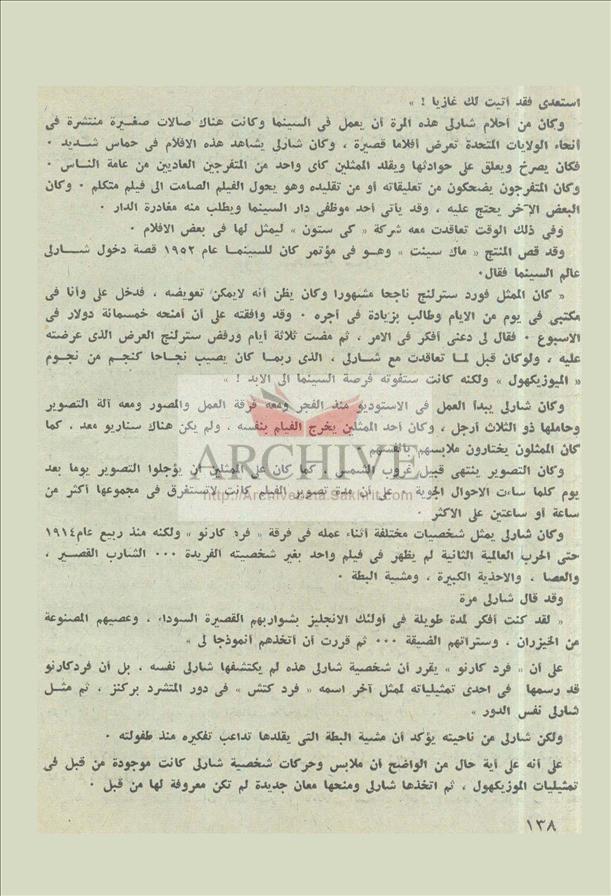 استعدى فقد أتيت لك غازيا ! »
وكان من أحلام شارلى هذه المرة أن يعمل فى السينما وكانت هناك صالات صغيرة منتشرة فى
أنحاء الولايات المتحدة تعرض أفلاما قصيرة ، وكان شارلى يشاهد هذه الافلام فى حماس شديد .
فكان يصرخ ويعلق على حوادثها ويقلد الممثلين كأى واحد من المتفرجين العاديين من عامة الناس .
وكان المتفرجون يضحكون من تعليقاته أو من تقليده وهو يحول الفيلم الصامت الى فيلم متكلم . وكان
البعض الآخر يحتج عليه ، وقد يأتى أحد موظفى دار السينما ويطلب منه مغادرة الدار .
وفى ذلك الوقت تعاقدت معه شركة « كى ستون » ليمثل لها فى بعض الافلام .
وقد قص المنتج « ماك سينت » وهو فى مؤتمر كان للسينما عام ١٩٥٢ قصة دخول شارلى
عالم السينما فقال.
« كان الممثل فورد سترلنج ناجحا مشهورا وكان يظن أنه لايمكن تعويضه ، فدخل على وأنا فى
مكتبى فى يوم من الايام وطالب بزيادة فى أجره . وقد وافقته على أن أمنحه خمسمائة دولار فى
الاسبوع . فقال لى دعنى أفكر فى الامر ، ثم مضت ثلاثة أيام ورفض سترلنج العرض الذى عرضته
عليه ، ولوكان قبل لما تعاقدت مع شارلى ، الذى ربما كان يصيب نجاحا كنجم من نجوم
« الميوزيكهول » ولكنه كانت ستفوته فرصة السينما الى الابد ! »
وكان شارلى يبدأ العمل فى الاستوديو منذ الفجر ومعه فرقة العمل والمصور ومعه آلة التصوير
وحاملها ذو الثلاث أرجل ، وكان أحد الممثلين يخرج الفيلم بنفسه . ولم يكن هناك سناريو معد ، كما
كان الممثلون يختارون ملابسهم بأنفسهم
وكان التصوير ينتهى قبيل غروب الشمس . كما كان على الممثلين أن يؤجلوا التصوير يوما بعد
يوم كلما ساءت الاحوال الجوية . على أن مدة تصوير الفيلم كانت لاتستغرق فى مجموعها أكثر من
ساعة أو ساعتين على الاكثر .
وكان شارلى يمثل شخصيات مختلفة أثناء عمله فى فرقة « فرد كارنو » ولكنه منذ ربيع عام١٩١٤
حتى الحرب العالمية الثانية لم يظهر فى فيلم واحد بغير شخصيته الفريدة ... الشارب القصير ،
والعصا ، والاحذية الكبيرة ، ومشية البطة .
وقد قال شارلى مرة
« لقد كنت أفكر لمدة طويلة فى أولئك الانجليز بشواربهم القصيرة السوداء ، وعصيهم المصنوعة
من الخيزران ، وستراتهم الضيقة ... ثم قررت أن أتخذهم أنموذجا لى »
على أن « فرد كارنو » يقرر أن شخصية شارلى هذه لم يكتشفها شارلى نفسه ، بل أن فردكارنو
قد رسمها فى احدى تمثيلياته لممثل آخر اسمه « فرد كتش » فى دور المتشرد بركنز ، ثم مثل
شارلى نفس الدور »
ولكن شارلى من ناحيته يؤكد أن مشية البطة التى يقلدها تداعب تفكيره منذ طفولته .
على أنه على أية حال من الواضح أن ملابس وحركات شخصية شارلى كانت موجودة من قبل فى
تمثيليات الموزيكهول ، ثم اتخذها شارلى ومنحها معان جديدة لم تكن معروفة لها من قبل .
١٣٨
ARCHIVE
http://Archivebeta.Sakhrit.com